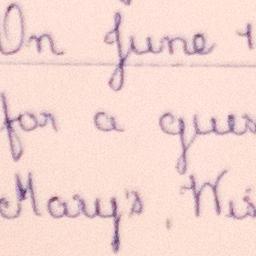 On June
for a
Mary's, Wis